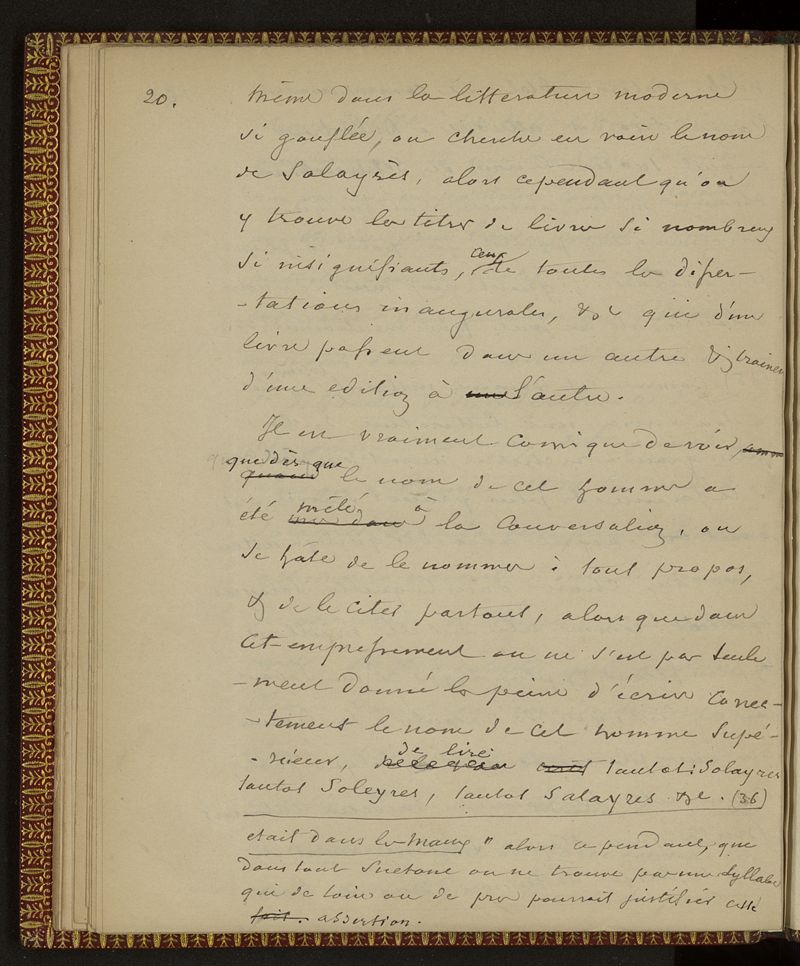 20. même dans la litterature moderne
si gonflée, on cherche en vain le nom
de Solayrès, alors cependant qu'on
y trouve les titres de livres si nombreux
si insignifiants, ceux de toutes les disser-
-tations inaugurales, &c qui d'un
livre passent dans un autre & trainent
d'une edition à l'autre.
Il est vraiment comique de voir
que dès que le nom de cet homme a
été mêlé à la conversation, on
se hâte de le nommer à tout propos,
& de le citer partout, alors que dans
cet empressement on ne s'est pas seule
-ment donné la peine d'écrire correc-
-tement le nom de cet homme supé-
-rieur, de lire tantot: Solayres
tantot Soleyres, tantot Salayres &c. (36)
etait dans les maux" alors cependant, que
dans tout Suetone on ne trouve pas une syllabe
qui de loin ou de près pourrait justifier cette
assertion.